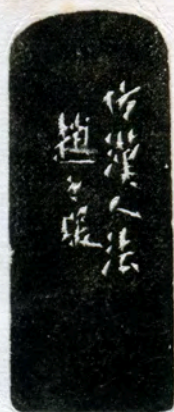 仿漢人法
趙之琛